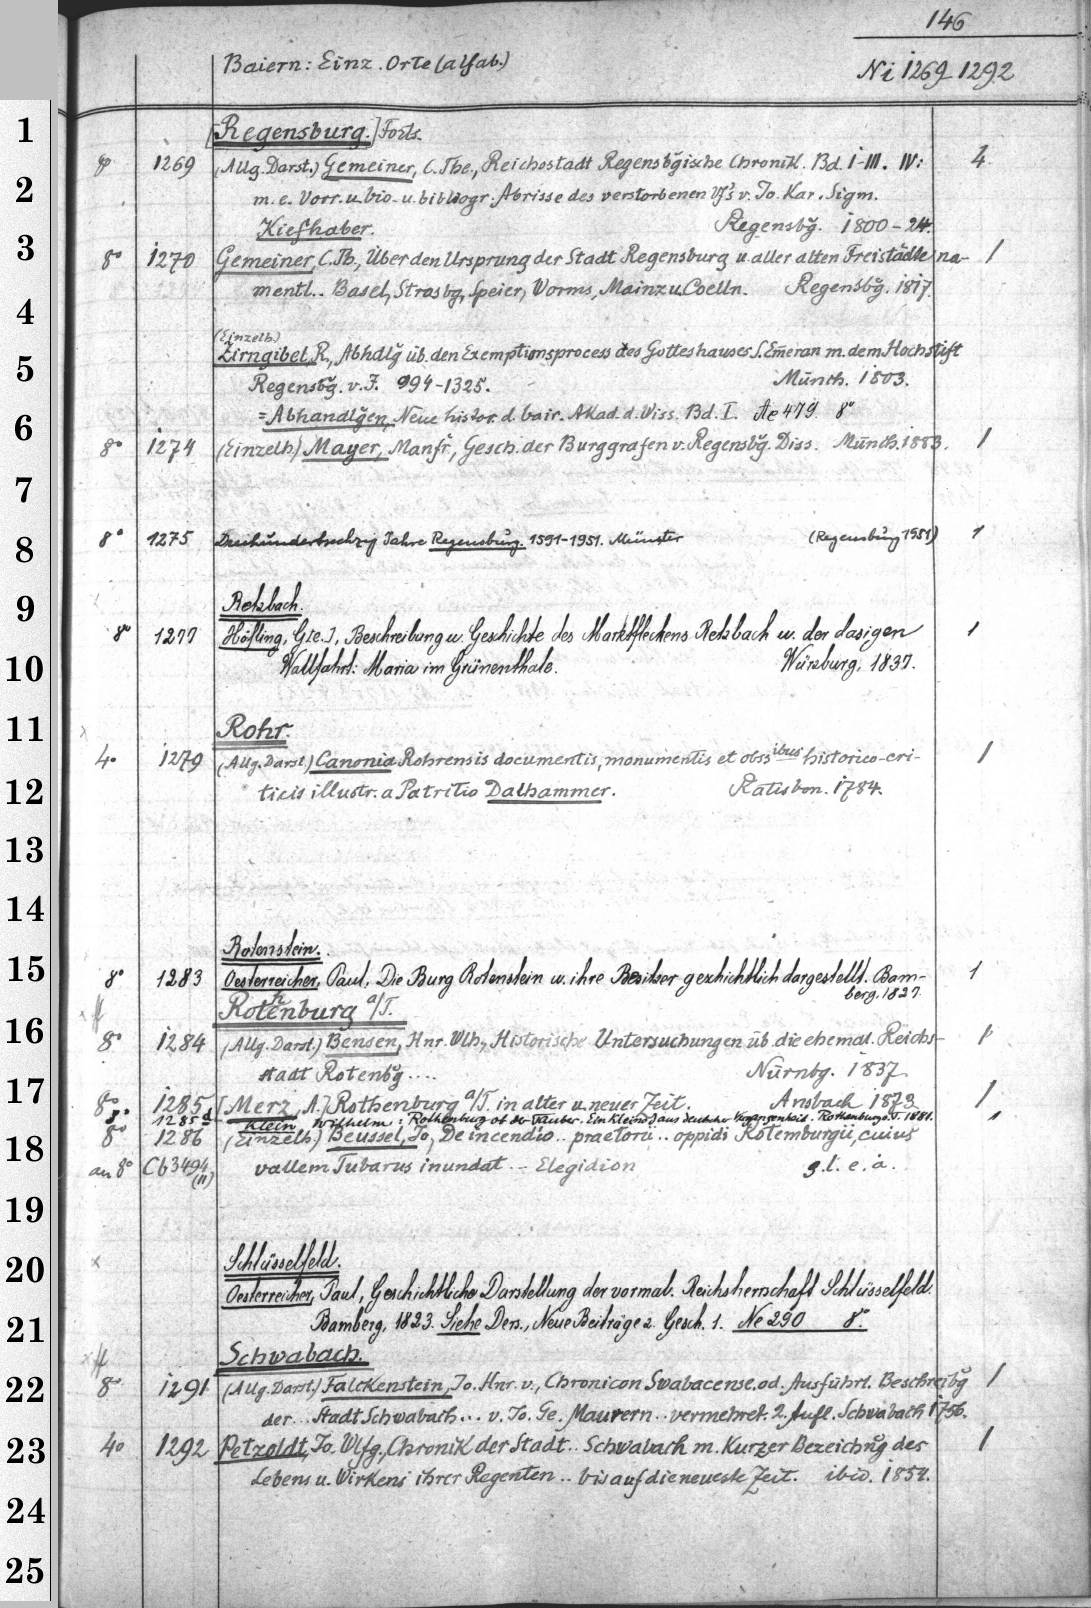 146
Baiern: Einz. Orte (alfab.)
Ni 1269-1292
1
[Regensburg.] Forts.
8o 1269 (Allg. Darst.) Gemeiner, C. The., Reichsstadt Regensbg̃ische Chronik. Bd. I-III. IV: 4
2
m. e. Vorr. u. bio- u. bibliogr. Abrisse des verstorbenen Vf's v. Jo. Kar. Sigm.
Kiefhaber. Regensbg̃. 1800-24.
3
8o 1270 Gemeiner, C. Th., Über den Ursprung der Stadt Regensburg u. aller alten Freistädte na- 1
mentl.. Basel, Strasbg, Speier, Worms, Mainz u. Coelln. Regensbg̃. 1817.
4
(Einzelh.)
5
Zirngibel, R., Abhdlg̃ üb. den Exemptionsprocess des Gotteshauses S. Emeran m. dem Hochstift
Regensbg̃. v. J. 994-1325. Münch. 1803.
6
= Abhandlg̃en, Neue histor. d. bair. Akad. d. Wiss. Bd. I. Ae 479 8o
8o 1274 (Einzelh.) Mayer, Manfr., Gesch. der Burggrafen v. Regensbg̃. Diss. Münch. 1883. 1
7
8
8o 1275 Dreihundertsechzig Jahre Regensburg. 1591-1951. Münster (Regensburg 1951) 1
9
Retzbach.
8o 1277 Höfling, G[e.], Beschreibung u. Geschichte des Marktfleckens Retzbach u. der dasigen 1
10
Wallfahrt: Maria im Grünenthale. Würzburg, 1837.
11
Rohr.
4o 1279 (Allg. Darst.) Canonia Rohrensis documentis, monumentis et obss ibus historico-cri- 1
12
ticis illustr. a Patritio Dalhammer. Ratisbon. 1784.
13
14
Rotenstein.
15
8o 1283 Oesterreicher, Paul, Die Burg Rotenstein u. ihre Besitzer geschichtlich dargestellt. Bam- 1
berg, 1827.
Rothenburg a/T.
16
8o 1284 (Allg. Darst.) Bensen, Hnr. Wlh., Historische Untersuchungen üb. die ehemal. Reichs- 1
stadt Rotenbg̃.... Nürnbg. 1837.
17
8o 1285 [Merz, A.] Rothenburg a/T. in alter u. neuer Zeit. Ansbach 1873 1
8o 1285d Klein Wilhelm: Rothenburg ob der Tauber. Ein Kleinod aus deutscher Vergangenheit. Rothenburg o. T. 1881. 1
18
8o 1286 (Einzelh.) Beussel, Jo, De incendio.. praetorii.. oppidi Rotemburgii, cuius
an 8o Cb 3494 (11) vallem Tubarus inundat.- Elegidion s. l. e. a.
19
20
Schlüsselfeld.
Oesterreicher, Paul, Geschichtliche Darstellung der vormal. Reichsherrschaft Schlüsselfeld.
21
Bamberg, 1823. Siehe Ders., Neue Beiträge z. Gesch. 1. Ne 290 8o.
Schwabach.
22
8o 1291 (Allg. Darst.) Falckenstein, Jo. Hnr. v., Chronicon Swabacense. od. Ausführl. Beschreibg̃ 1
der... Stadt Schwabach... v. Jo. Ge. Maurern.. vermehret. 2. Aufl. Schwabach 1756.
23
4o 1292 Petzoldt, Jo. Wlfg, Chronik der Stadt.. Schwabach m. Kurzer Bezeichng̃ des 1
Lebens u. Wirkens ihrer Regenten.. bis auf die neueste Zeit. ibid. 1854.
24
25